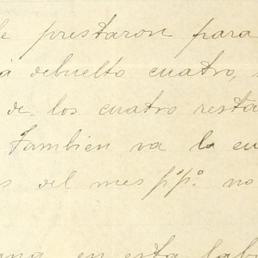 le prestaron para
á debuelto cuatro,
de los cuatro resta
Tambien va la cu
s del mes p°p°. no
ana en esta lab